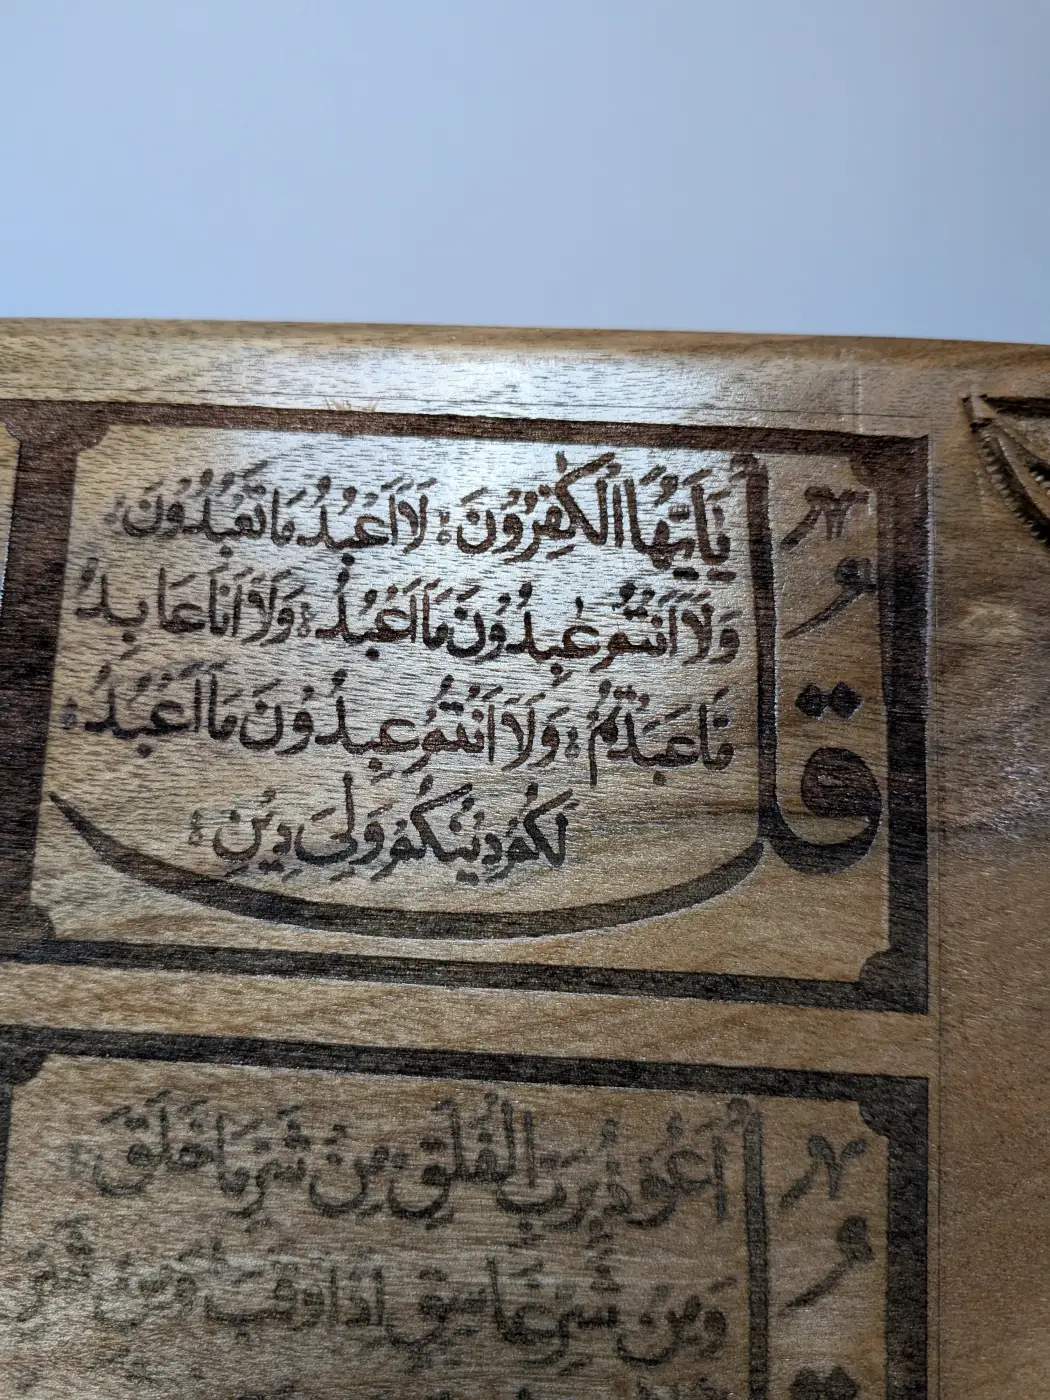 قل
يَا أَيُّهَا الْكَفِرُونَ لَا أَعْبُدُ مَا تَعْبُدُونَ
وَلَا أَنْتُمْ عٰبِدُونَ مَا أَعْبُدُ وَلَا أَنَا عَابِدٌ
مَا عَبَدْتُمْ وَلَا أَنْتُمْ عٰبِدُونَ مَا أَعْبُدُ
لَكُمْ دِينُكُمْ وَلِيَ دِينِ
أَعُوذُ بِرَبِّ الْفَلَقِ مِنْ شَرِّ مَا خَلَقَ
وَمِنْ شَرِّ غَاسِقٍ إِذَا وَقَبَ